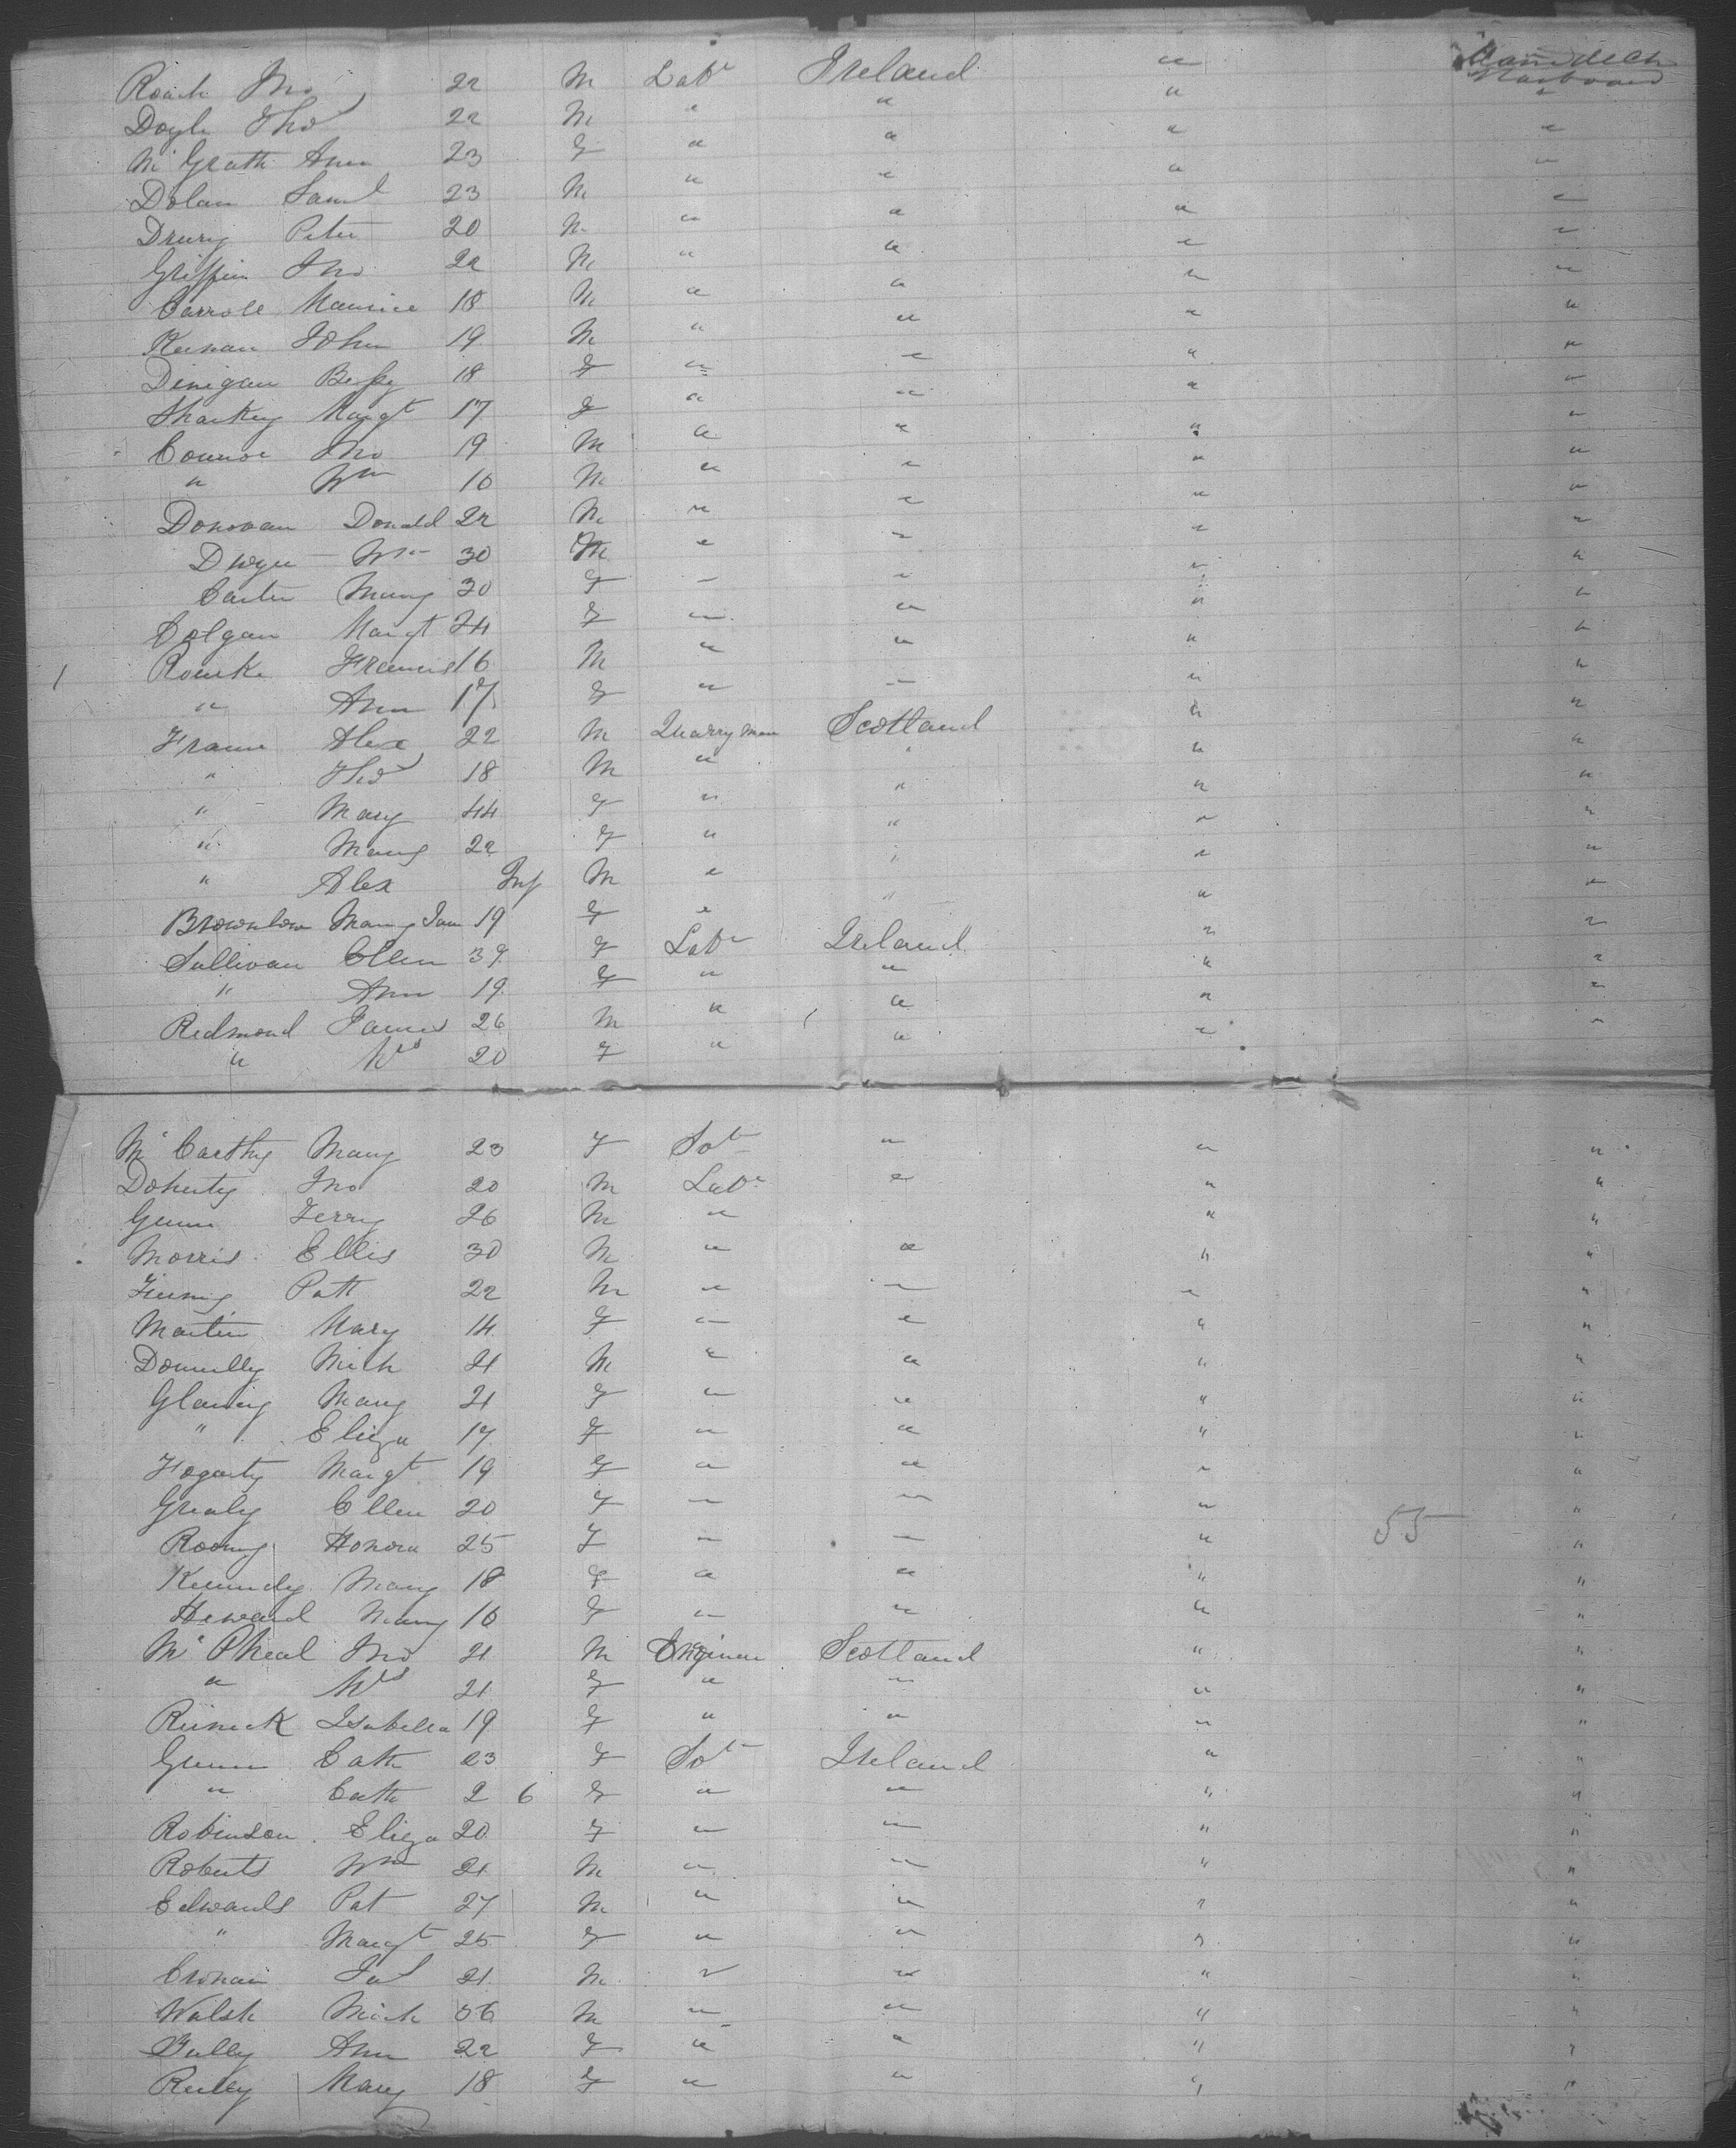 Roach Jno 22 M Labr Ireland " Main deck Starboard
Doyle Thos 22 M " " " "
McGrath Ann 23 F " " " "
Dolan Saml 23 M " " " "
Drury Peter 20 M " " " "
Griffin Jno 22 M " " " "
Carroll Maurice 18 M " " " "
Keenan John 19 M " " " "
Dinigan Bessy 18 F " " " "
Sharkey Margt 17 F " " " "
Connor Jno 19 M " " " "
" Wm 16 M " " " "
Donovan Donald 22 M " " " "
Dwyer Wm 30 M " " " "
Carter Mary 30 F " " " "
Colgan Margt 24 F " " " "
Rourke Francis 16 M " " " "
" Ann 17 F " " " "
Frame Alex 22 M Quarryman Scotland " "
" Thos 18 M " " " "
" Mary 44 F " " " "
" Mary 22 F " " " "
" Alex Inf M " " " "
Brownlow Mary Jane 19 F " " " "
Sullivan Ellen 39 F Labr Ireland " "
" Ann 19 F " " " "
Redmond James 26 M " " " "
" Mrs 20 F " " " "
McCarthy Mary 23 F " " "
Doherty Jno 20 M Labr " " "
Gunn Jerry 26 M " " "
Morris Ellis 30 M " " " "
Patk 22 M " " " "
Martin Mary 14 F " " " "
Donnelly Mich 21 M " " " "
Mary 21 F " " " "
" Eliza 17 F " " " "
Fogarty Margt 19 F " " " "
Grealy Ellen 20 F " " " "
Rooney Honora 25 F " " " 55 "
Kennedy Mary 18 F " " " "
Heward Mary 16 F " " " "
McPheal Jno 21 M Engineer Scotland " "
" Mrs 21 F " " " "
Isabella 19 F " " " "
Gunn Cath 23 F Ireland " "
" Cath 2 6 F " " " "
Robinson Eliza 20 F " " " "
Roberts Wm 21 M " " " "
Edwards Pat 27 M " " " "
" Margt 25 F " " " "
Cronain Jas 21 M " " " "
Walsh Mich 56 M " " " "
Tully Ann 22 F " " " "
Reiley Mary 18 F " " " "